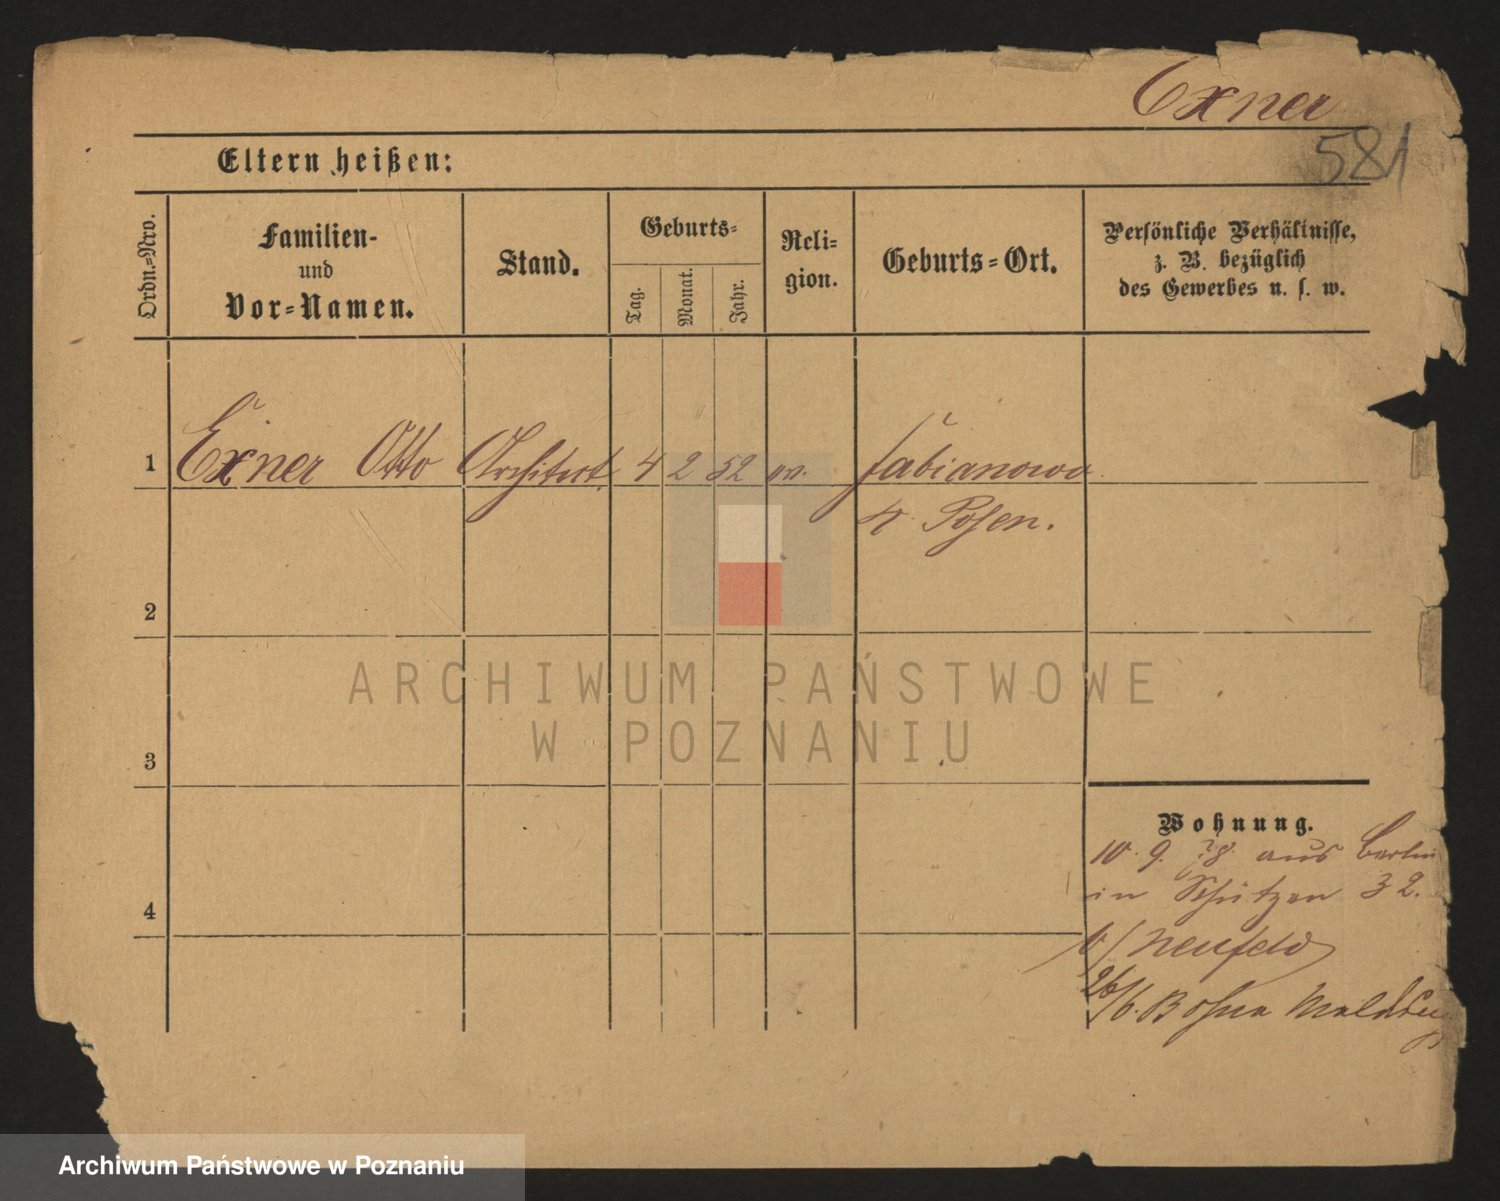 Exner
581
Eltern heißen:
Ordn.=Nro.
Familien-
und
Vor=Namen.
Stand.
Geburts=
Tag.
Monat.
Jahr.
Reli=
gion.
Geburts=Ort.
Persönliche Verhältnisse,
z. B. bezüglich
des Gewerbes u. s. w.
1 Exner Otto Architect. 4 2 52 ev. Fabianowo
Posen.
2
3
4
Wohnung.
10. 9. 78. aus Berlin
in Schützen 32.
b/ Neufeld
26/6.
ARCHIWUM PAŃSTWOWE
W POZNANIU
Archiwum Państwowe w Poznaniu